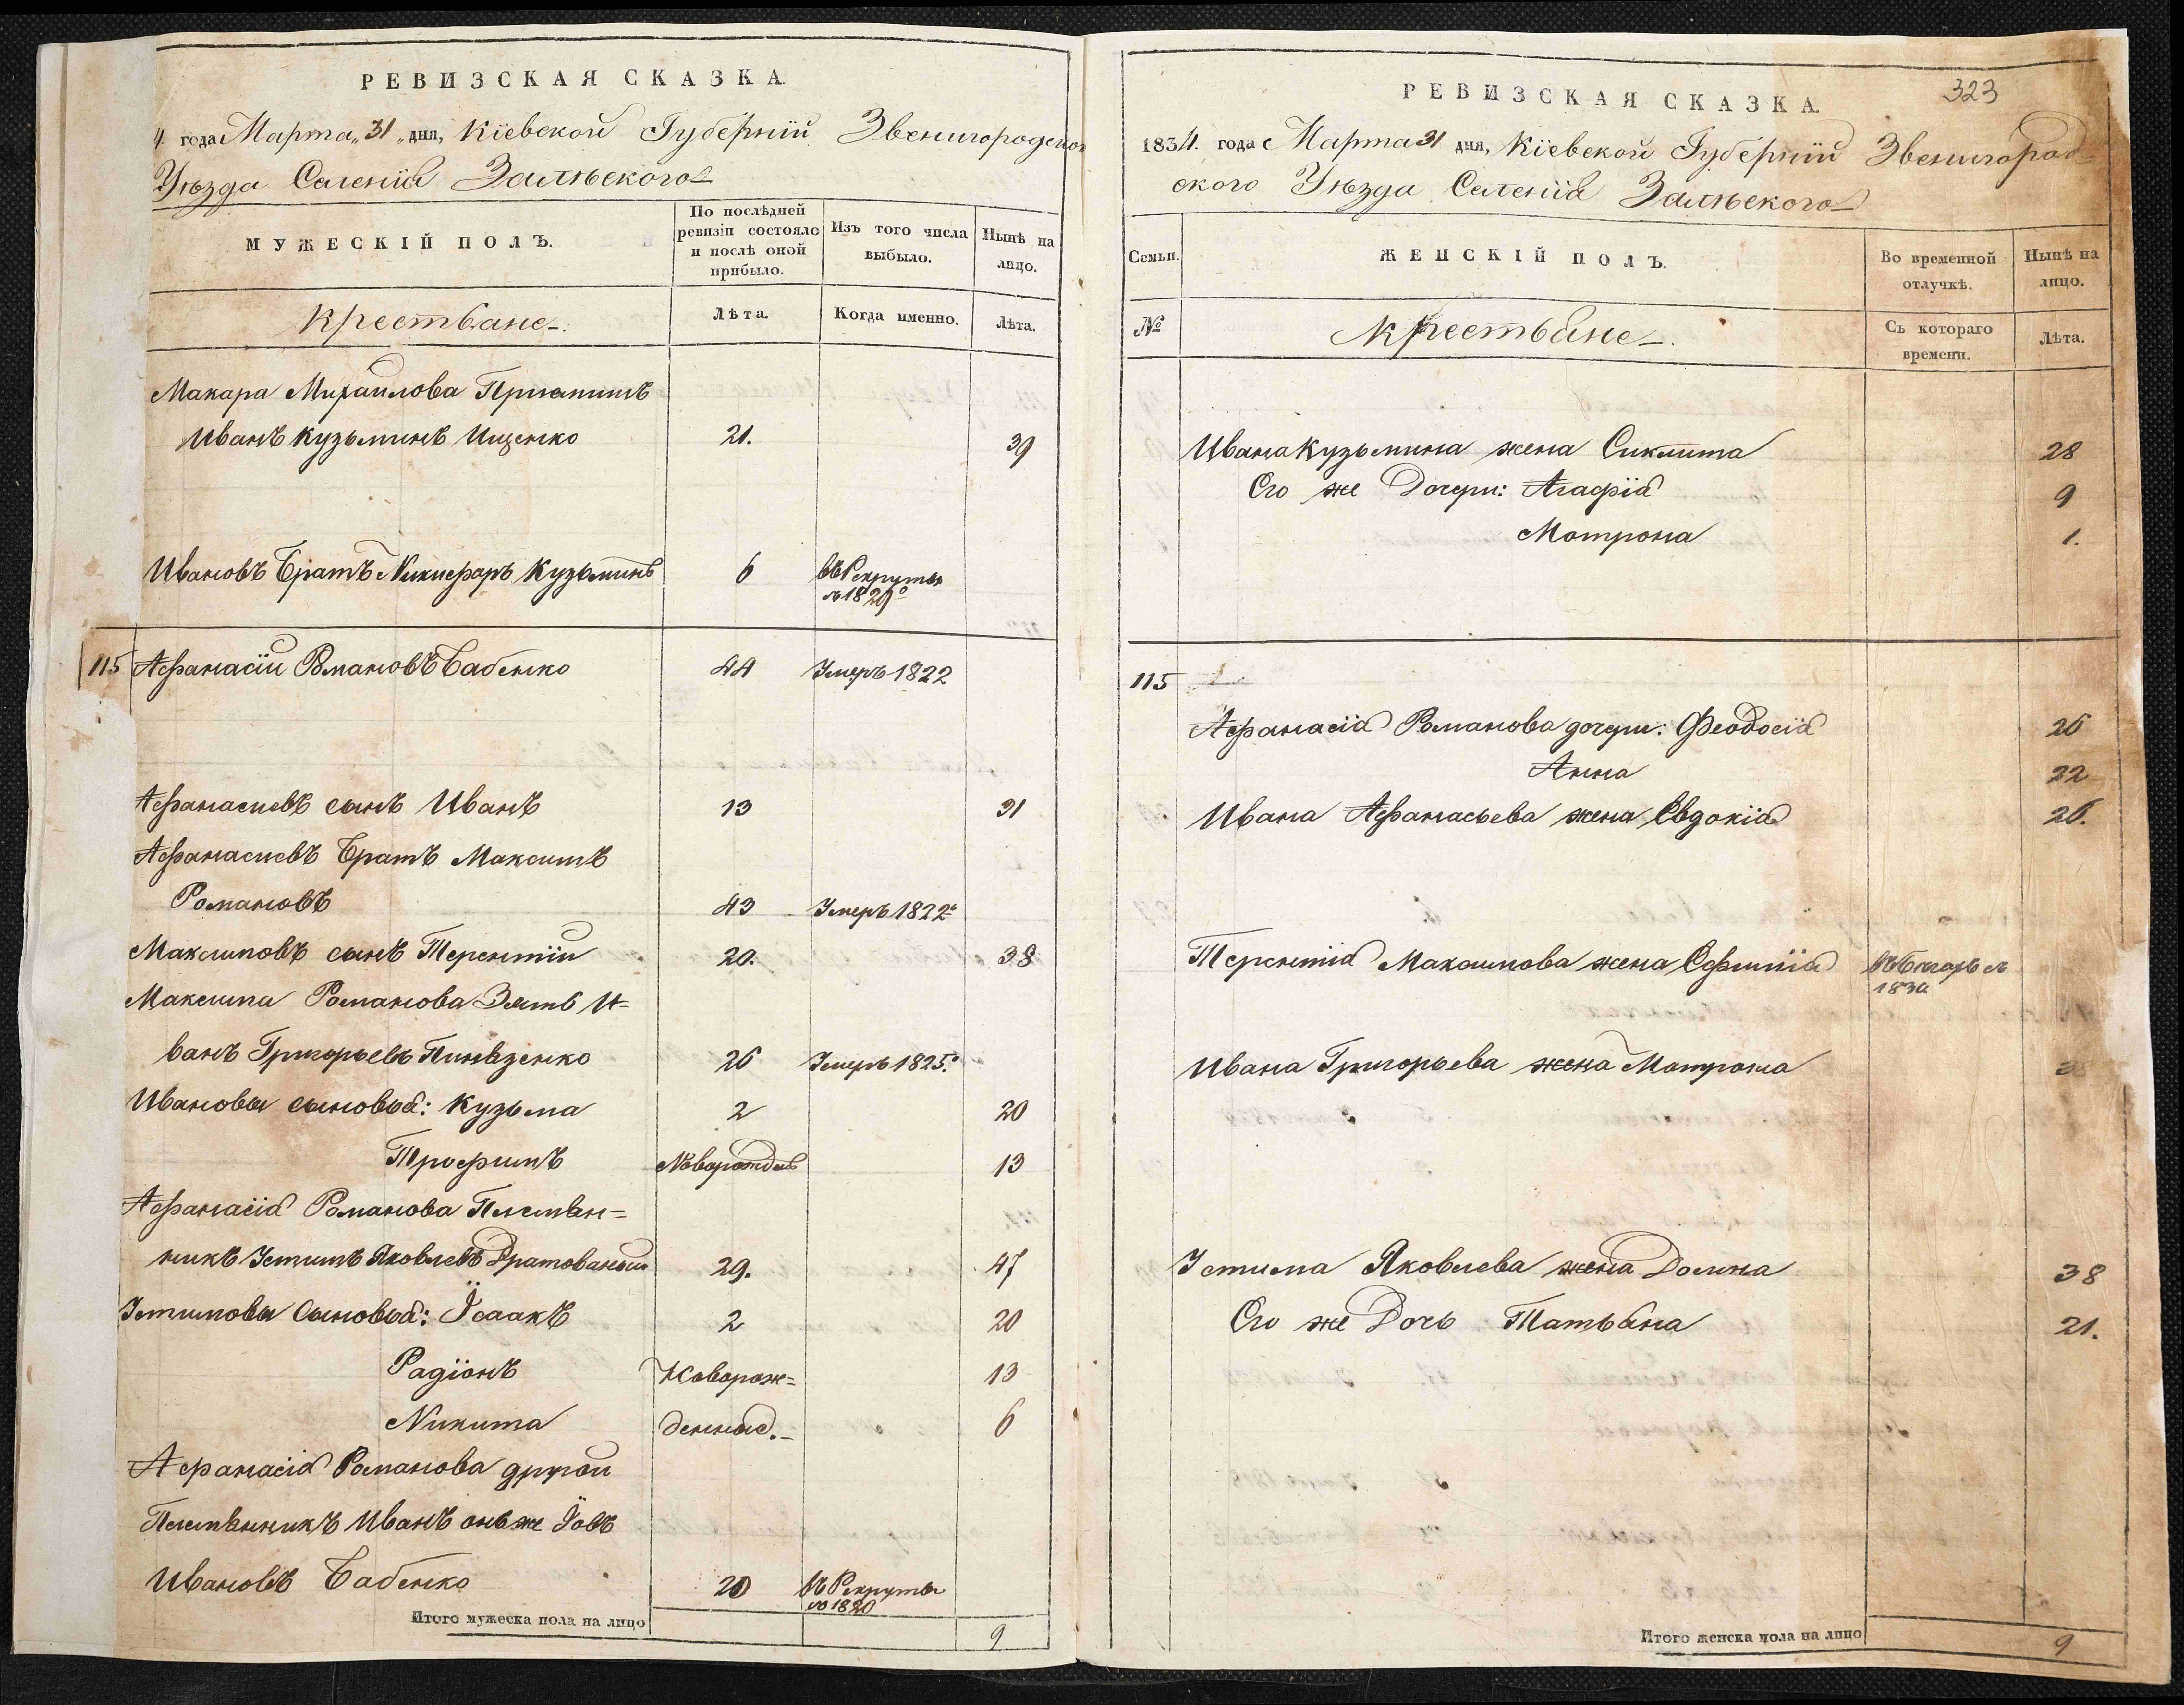 РЕВИЗСКАЯ СКАЗКА.
4. года Марта „31„ дня, Кіевской Губерніи Звенигородског
Уѣзда Селенія Залѣського
МУЖЕСКІЙ ПОЛЪ.
По послѣдней ревизіи состояло и послѣ оной прибыло.
Изъ того числа выбыло.
Нынѣ на лицо.
Крестьяне
Лѣта.
Когда именно.
Лѣта.
Макара Михайлова Приемишъ
Иванъ Кузьминъ Ищенко 21. 39
Ивановъ Братъ Никифоръ Кузьминъ 6 въ Рекруты
в 1829º
115 Афанасій Романовъ Бабенко 44 Умеръ 1822
Афанасиевъ сынъ Иванъ 13 31
Афанасиевъ Братъ Максимъ
Романовъ 43 Умеръ 1822º
Максимовъ сынъ Терентій 20. 38
Максима Романова Зять И=
ванъ Григорьевъ 26 Умеръ 1825º
Ивановы сыновья: Кузьма 2 20
Трофимъ Новорожден 13
Афанасія Романова Племян=
никъ Устимъ Яковлевъ Дратованый 29. 47
Устимовы Сыновья: Ісаакъ 2 20
Радіонъ Новорож= 13
Никита денные.- 6
Афанасія Романова другой
Племянникъ Иванъ онъ же Іовъ
Ивановъ Бабенко 20 въ Рекруты
в 1820
Итого мужеска пола на лицо 9
323
РЕВИЗСКАЯ СКАЗКА.
1834. года Марта 31 дня, Кіевской Губерніи Звенигород
ского Уѣзда Селенія Залѣського
Семьи.
ЖЕНСКІЙ ПОЛЪ.
Во временной отлучкѣ.
Нынѣ на лицо.
№
Крестьяне
Съ котораго времени.
Лѣта.
Ивана Кузьмина жена Сиклита 28
Его же Дочери: Агафія 9
Мотрона 1.
115
Афанасія Романова дочери: Феодосія 26
Анна 22
Ивана Афанасьева жена Евдокія 26.
Терентія Максимова жена Ефимія
1830
Ивана Григорьева жена Мотрона
Устима Яковлева жена Домна 38
Его же Дочь Татьяна 21.
Итого женска пола на лицо 9